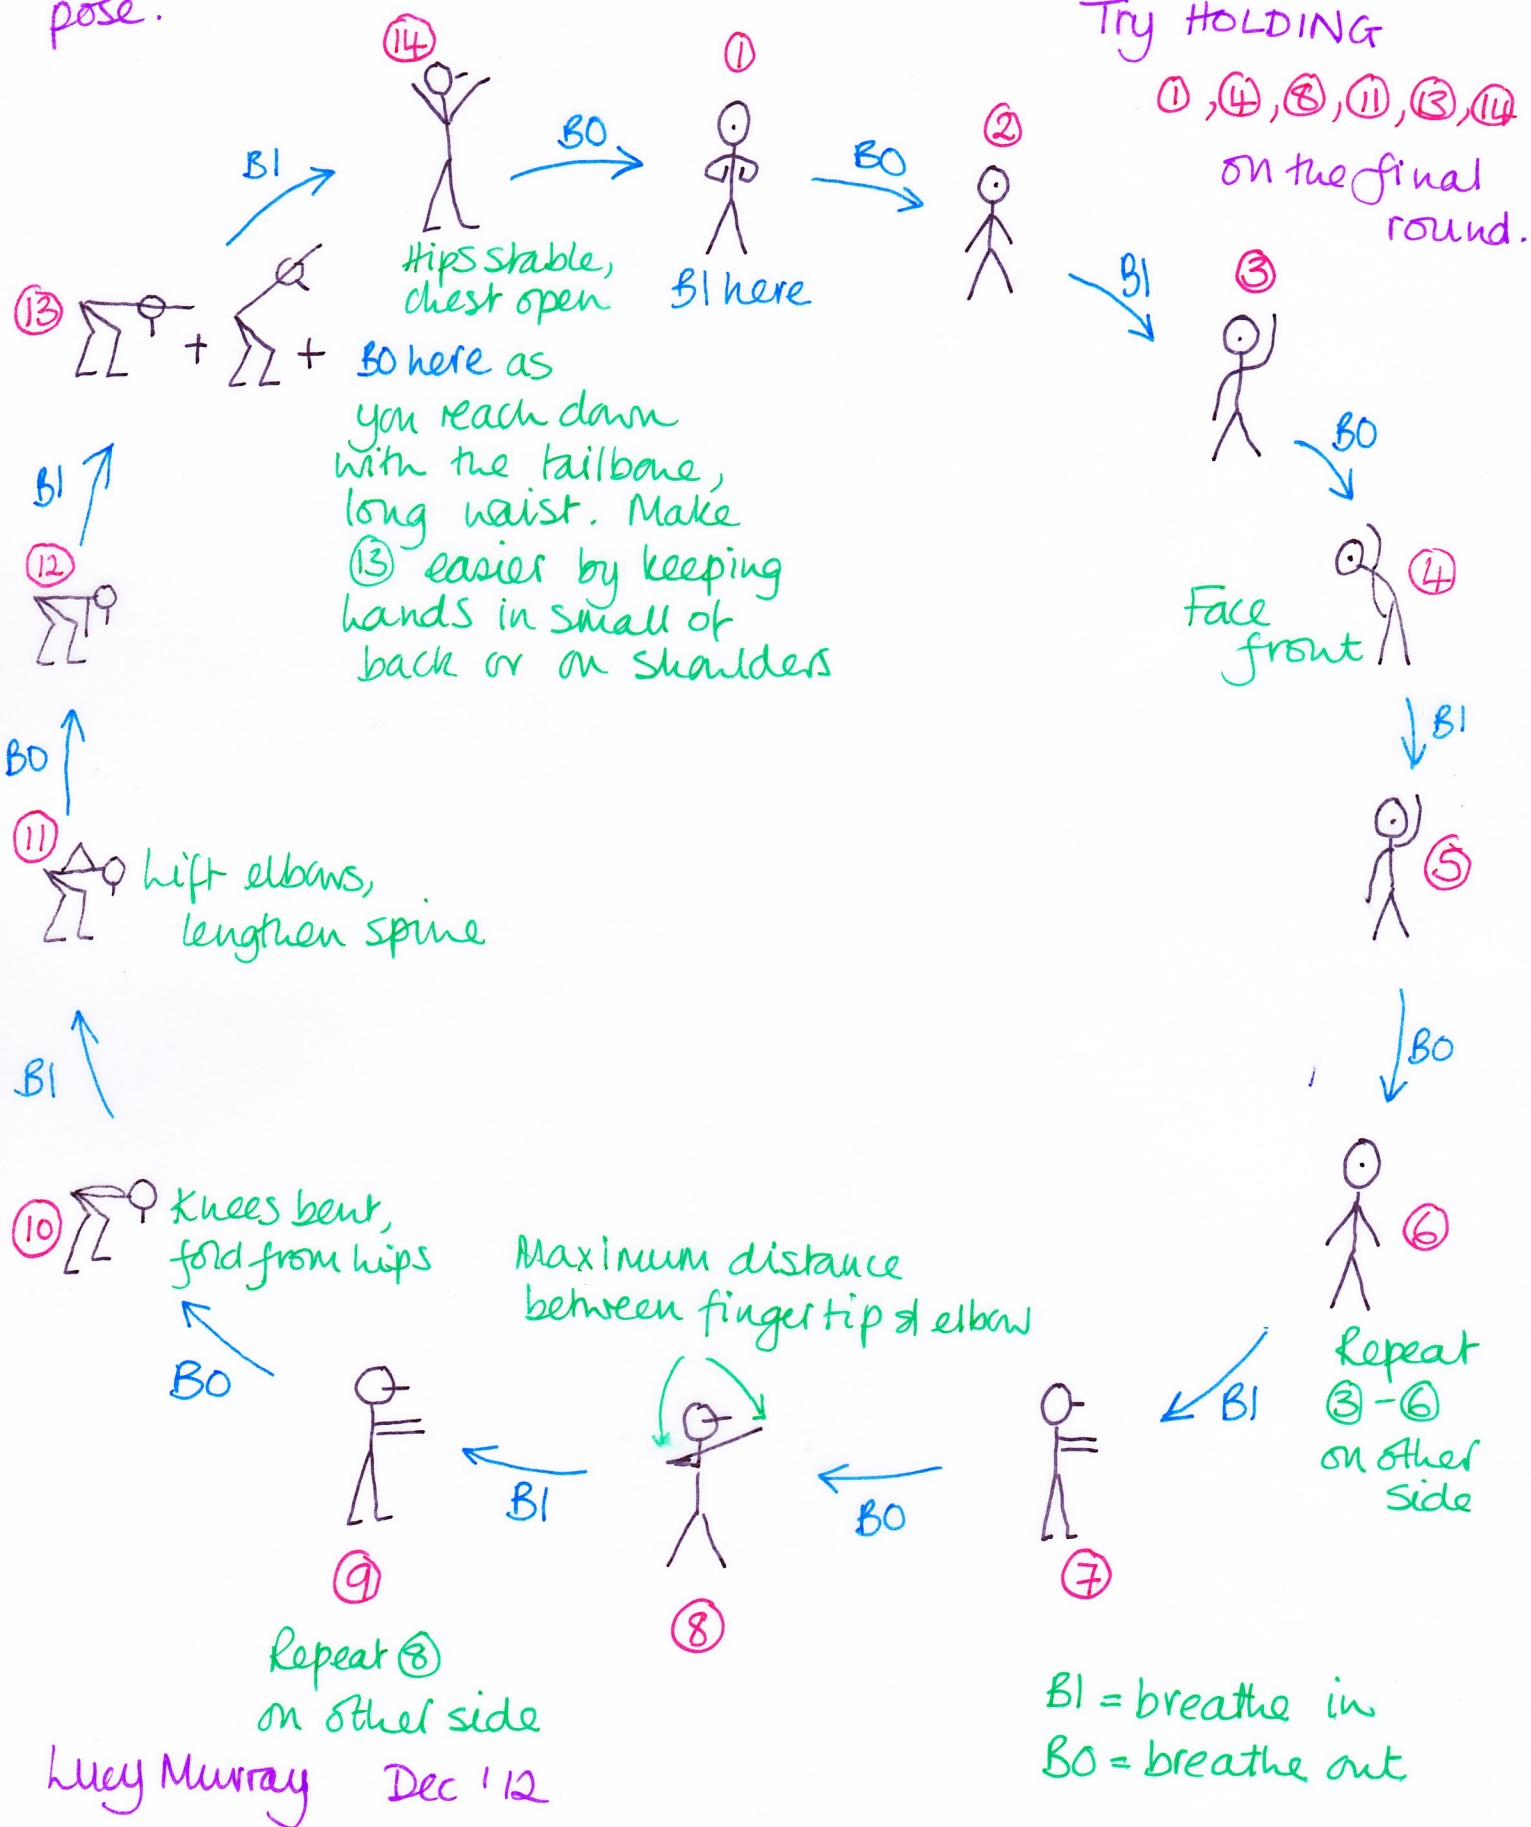 pose.
Try HOLDING
①, ④, ⑧, ⑪, ⑬, ⑭
on the final
round.
⑭
BO
①
BO
②
BI
Hips stable,
chest open
BI here
BI
③
⑬
+
+
BO here as
you reach down
with the tailbone,
long waist. Make
⑬ easier by keeping
hands in small of
back or on shoulders
BO
④
Face
front
BI
⑤
BO
⑥
Repeat
③-⑥
on other
side
BI
⑦
BO
Maximum distance
between fingertip & elbow
⑧
BI
⑨
Repeat ⑧
on other side
BO
⑩
Knees bent,
fold from hips
BI
⑪
Lift elbows,
lengthen spine
BO
⑫
BI
BI = breathe in
BO = breathe out
Lucy Murray Dec '12